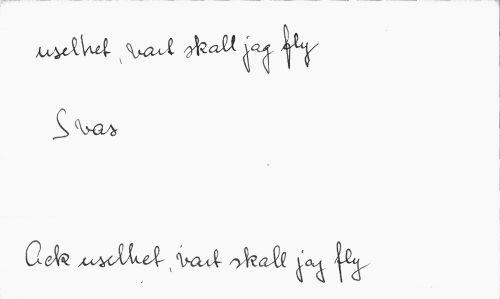 uselhet, vart skall jag fly
Svas
Ack uselhet, vart skall jag fly